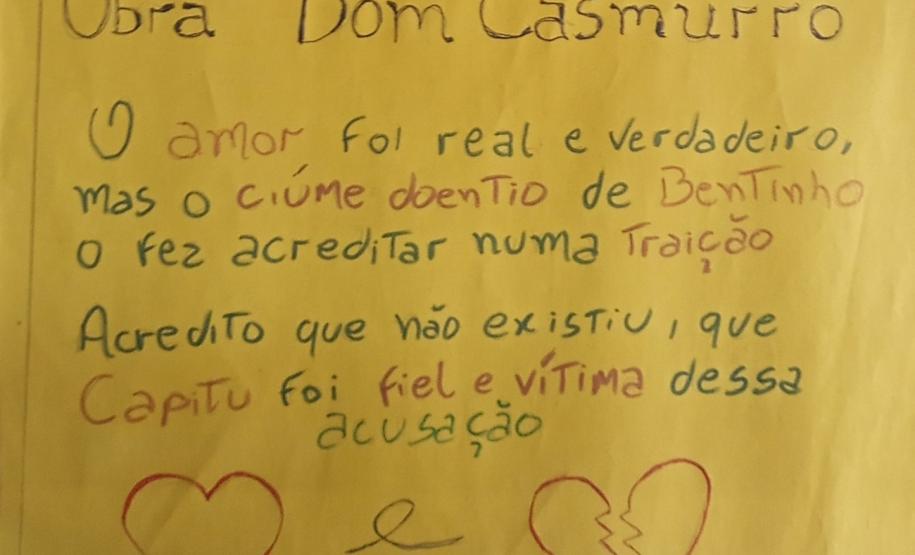 Obra Dom Casmurro
O amor foi real e verdadeiro,
mas o ciúme doentio de Bentinho
o fez acreditar numa Traição
Acredito que não existiu, que
Capitu foi fiel e vítima dessa
acusação
e